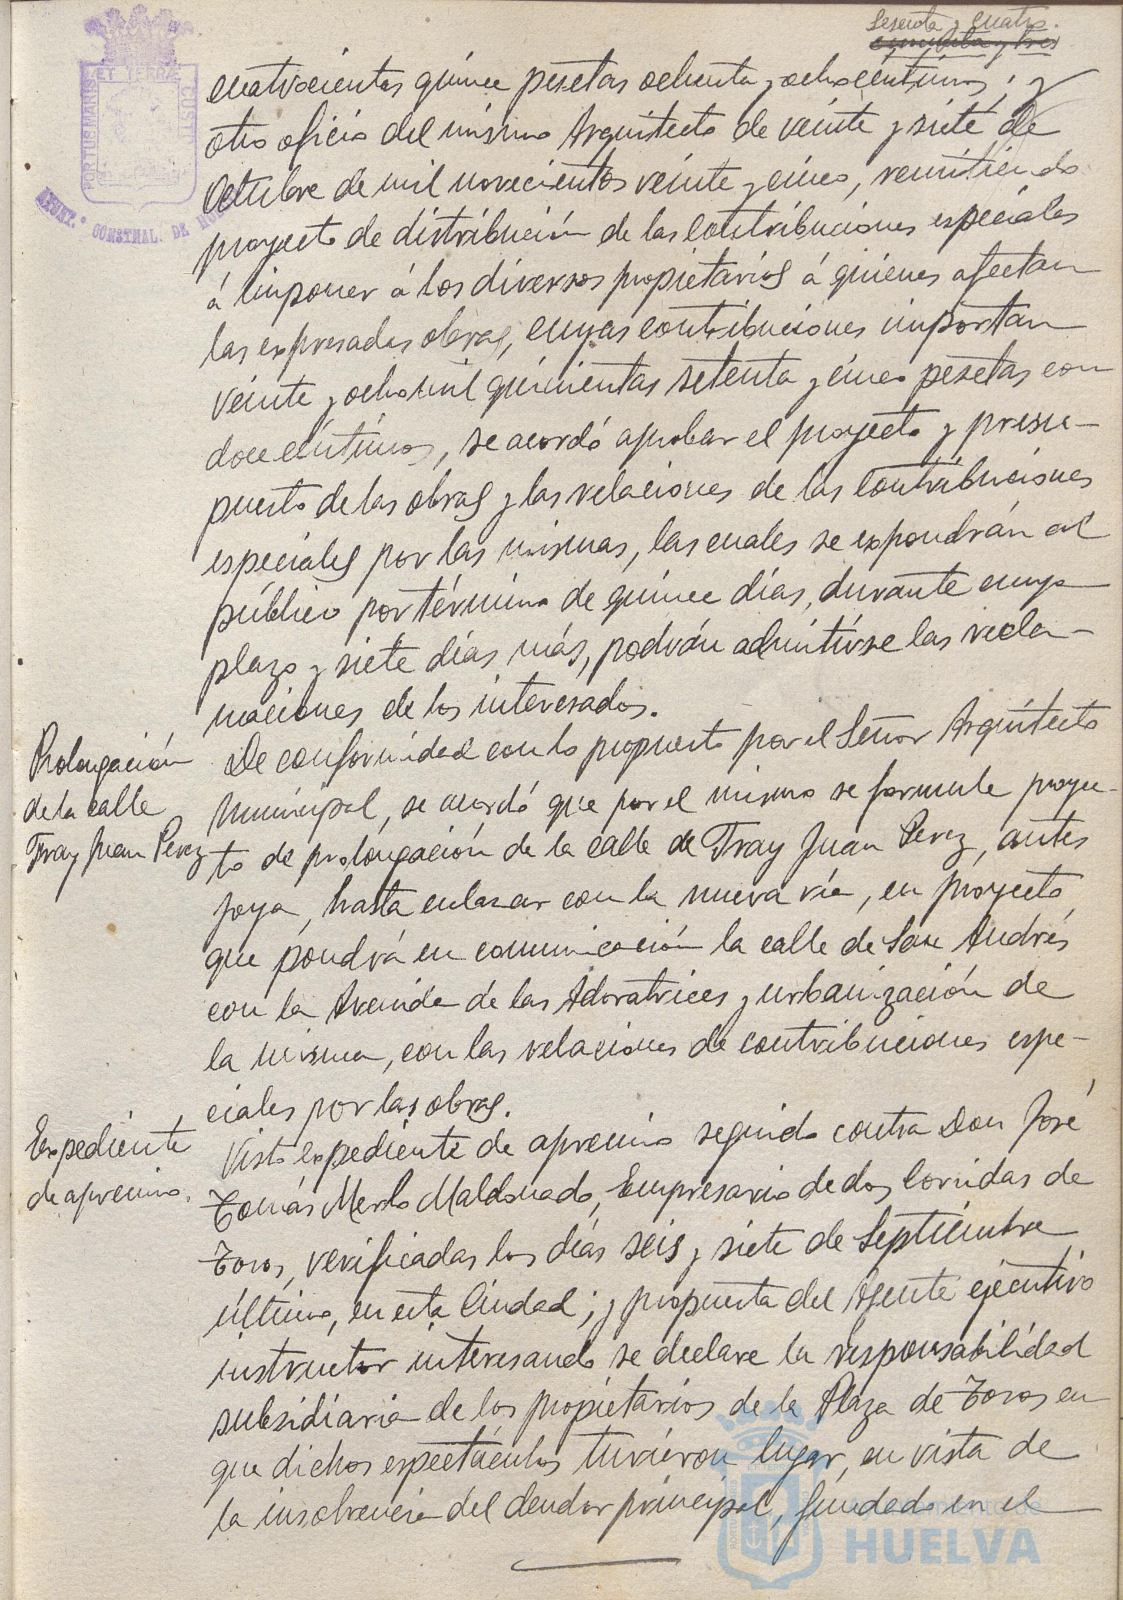 Sesenta y cuatro.
cincuenta y tres
PORTUS MARIS ET TERRÆ CUSTODIA
AYUNT.º CONSTNAL. DE HUELVA
cuatrocientas quince pesetas ochenta y ocho céntimos; y
otro oficio del mismo Arquitecto de veinte y siete de
Octubre de mil novecientos veinte y cinco, remitiendo
proyecto de distribución de las contribuciones especiales
á imponer á los diversos propietarios á quienes afectan
las expresadas obras, cuyas contribuciones importan
veinte y ocho mil quinientas setenta y cinco pesetas con
doce céntimos, se acordó aprobar el proyecto y presu-
puesto de las obras y las relaciones de las contribuciones
especiales por las mismas, las cuales se expondrán al
público por término de quince días, durante cuyo
plazo y siete días más, podrán admitirse las recla-
maciones de los interesados.
Prolongación
de la calle
Fray Juan Perez
De conformidad con lo propuesto por el Señor Arquitecto
Municipal, se acordó que por el mismo se formule proyec-
to de prolongación de la calle de Fray Juan Perez, antes
Joya, hasta enlazar con la nueva vía, en proyecto
que pondrá en comunicación la calle de San Andrés
con la Avenida de las Adoratrices y urbanización de
la misma, con las relaciones de contribuciones espe-
ciales por las obras.
Expediente
de apremio.
Visto expediente de apremio seguido contra Don José
Tomás Merlo Maldonado, Empresario de dos Corridas de
Toros, verificadas los días seis y siete de Septiembre
último, en esta Ciudad; y propuesta del Agente ejecutivo
instructor interesando se declare la responsabilidad
subsidiaria de los propietarios de la Plaza de Toros en
que dichos espectáculos tuvieron lugar, en vista de
la insolvencia del deudor principal, fundada en el
Ayuntamiento de
HUELVA